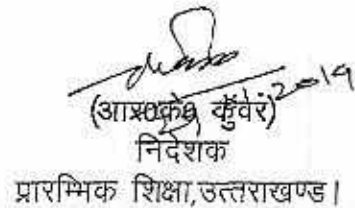 (आर०के० कुँवर)
निदेशक
प्रारम्भिक शिक्षा,उत्तराखण्ड।